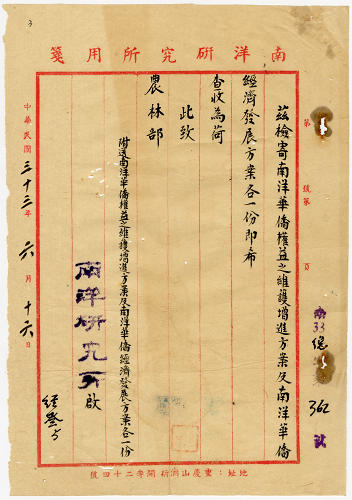 南洋研究所用箋
第 號第 頁
南33總 362 號
茲檢寄南洋華僑權益之維護增進方案及南洋華僑
經濟發展方案各一份即希
查收為荷
此致
農林部
附送南洋華僑權益之維護增進方案及南洋華僑經濟發展方案各一份
南洋研究所 啟
中華民國三十三年六月十六日
地址:重慶山洞新開寺二十四號
3